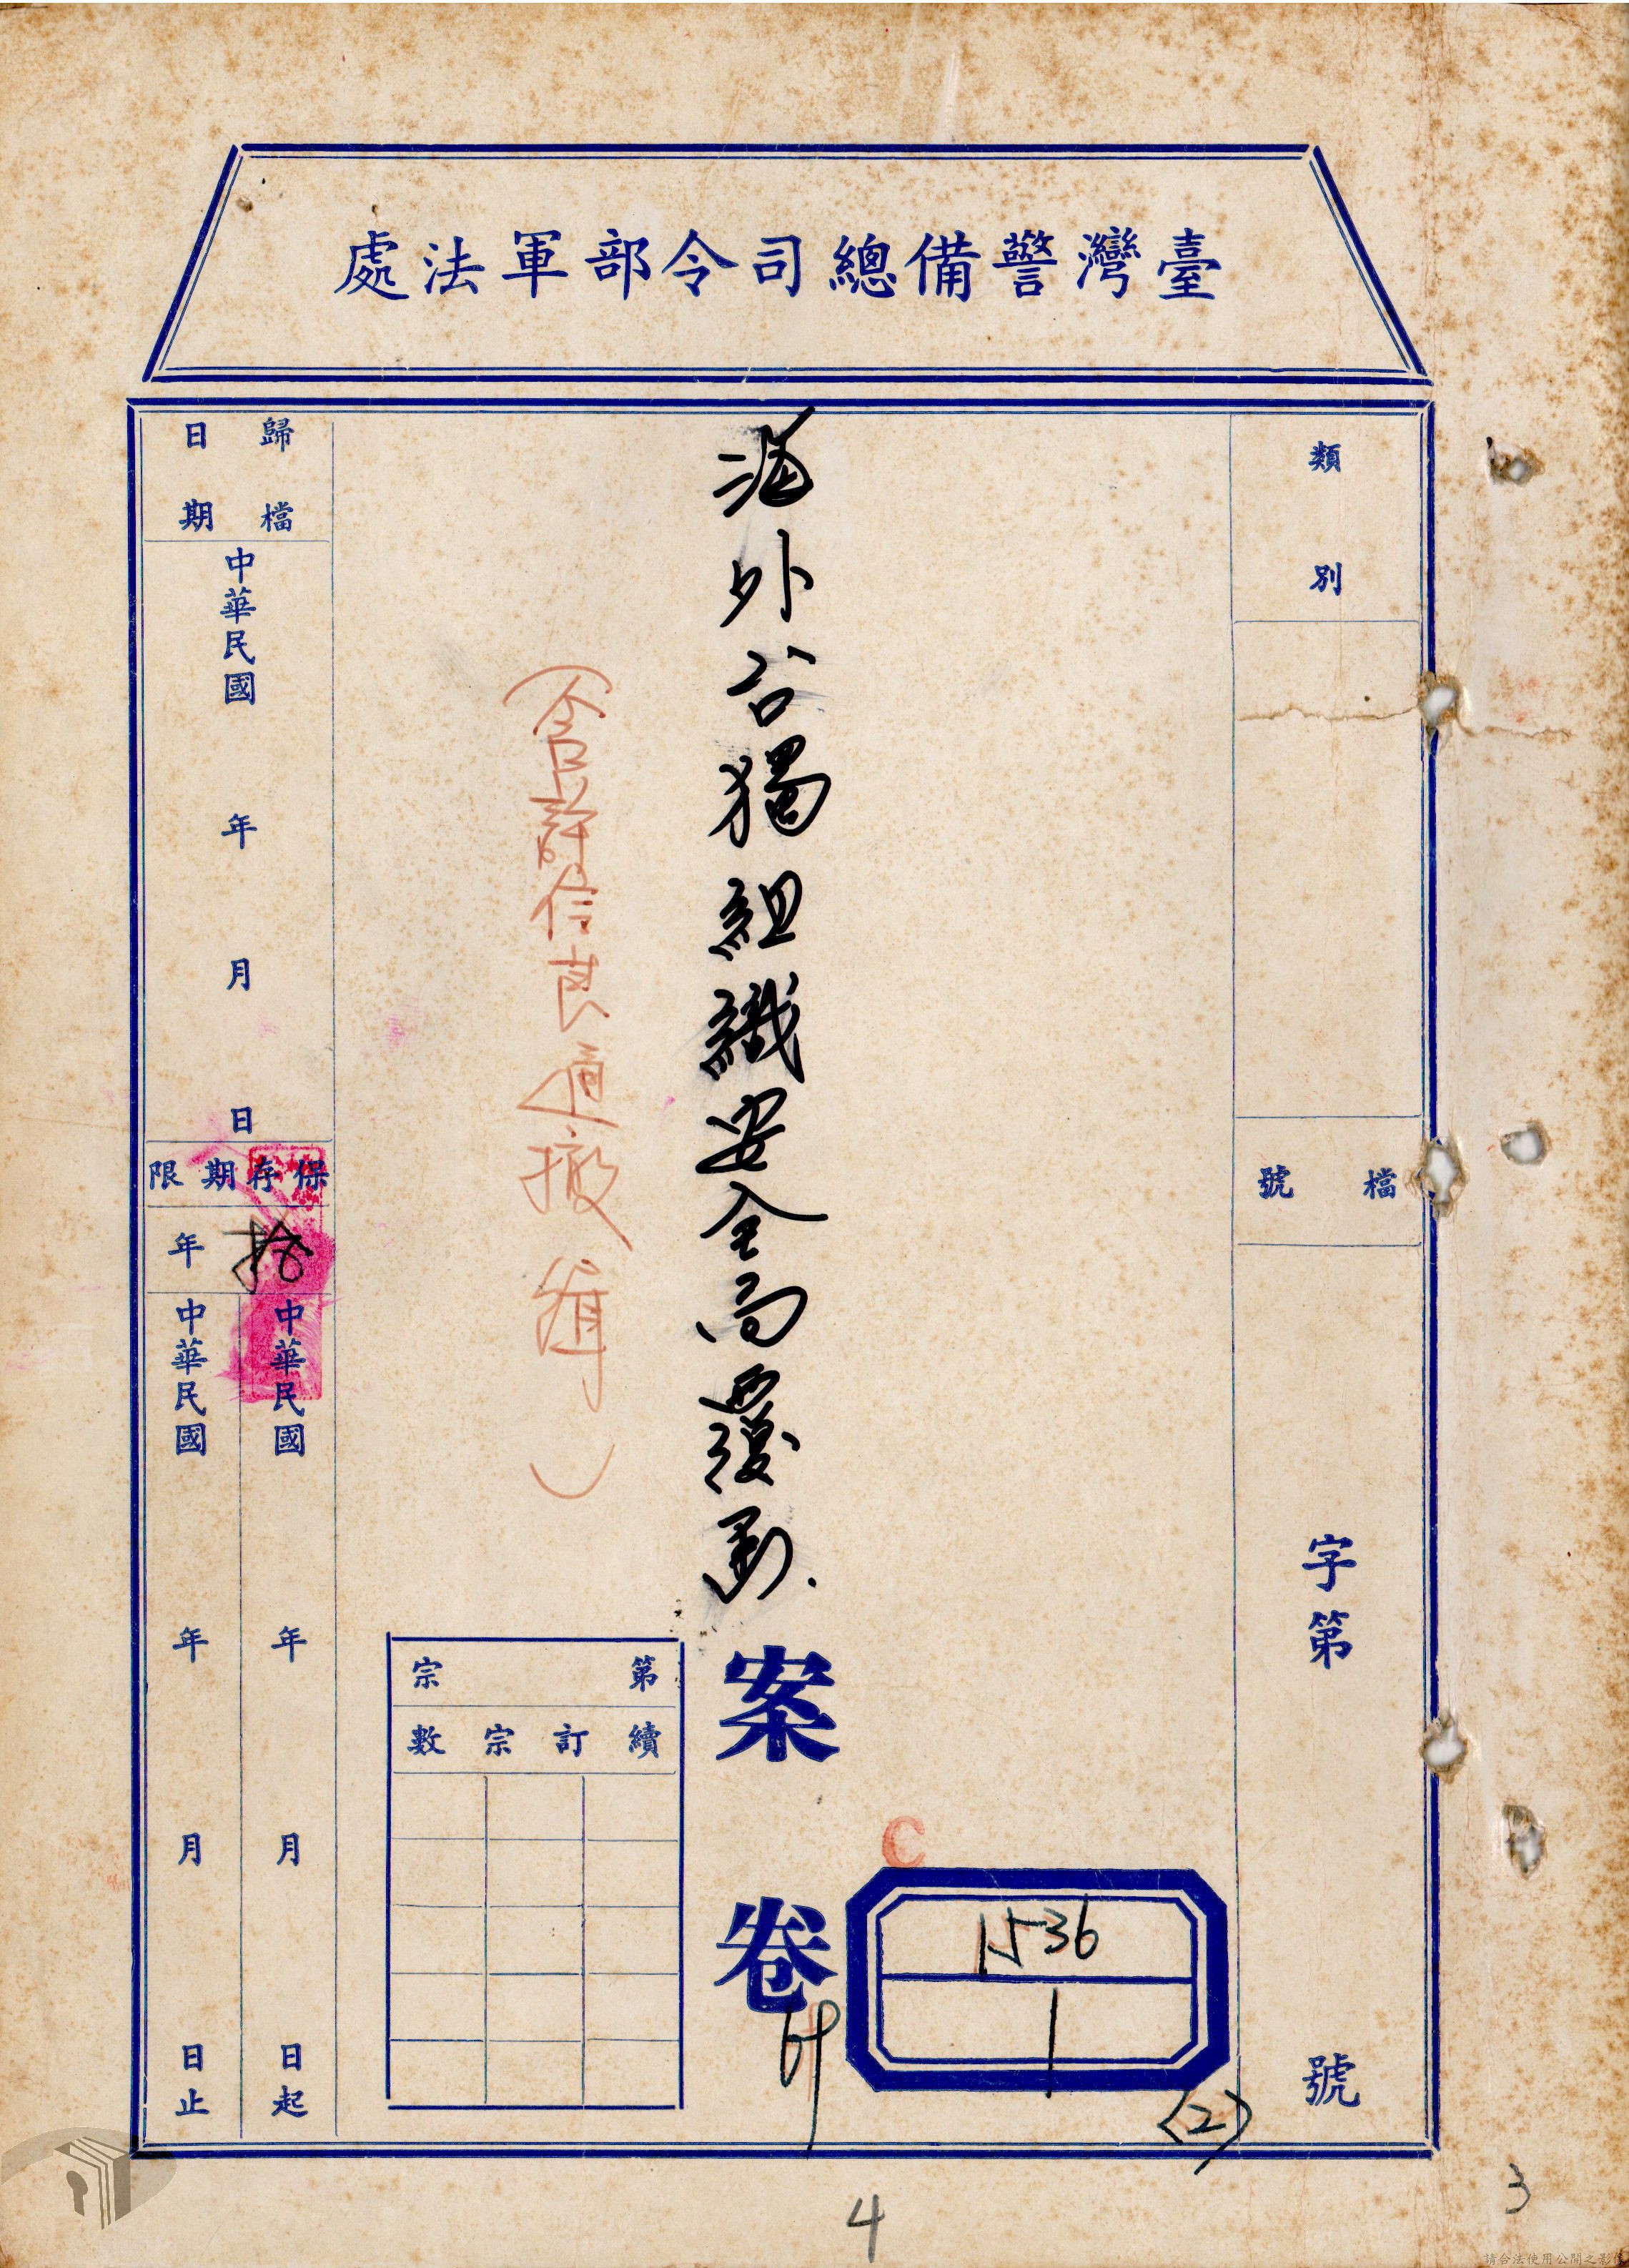 臺灣警備總司令部軍法處
類別
檔號
字第 號
海外台獨組織安全局覆
案卷
(含許信良通撤緝)
C
1536
1
(2)
第 宗
續訂宗數
歸檔日期
中華民國 年 月 日
保存期限
拾年
中華民國 年 月 日起
中華民國 年 月 日止
4
3
請合法使用公開之影